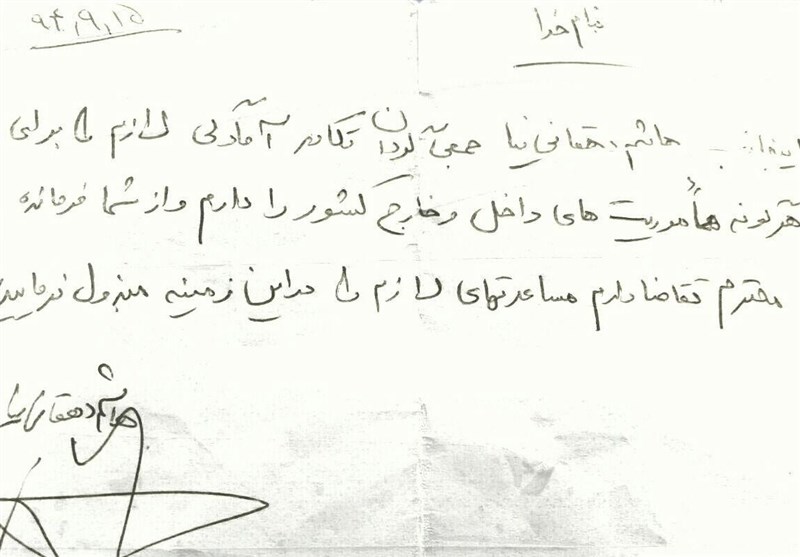 بنام خدا
۹۴,۹,۱۵
اینجانب هاشم دهقانی نیا جمعی گردان تکاور آمادگی لازم را برای
هرگونه مأموریت های داخل و خارج کشور را دارم و از شما فرمانده
محترم تقاضا دارم مساعدتهای لازم را در این زمینه مبذول فرمایید
هاشم دهقانی نیا